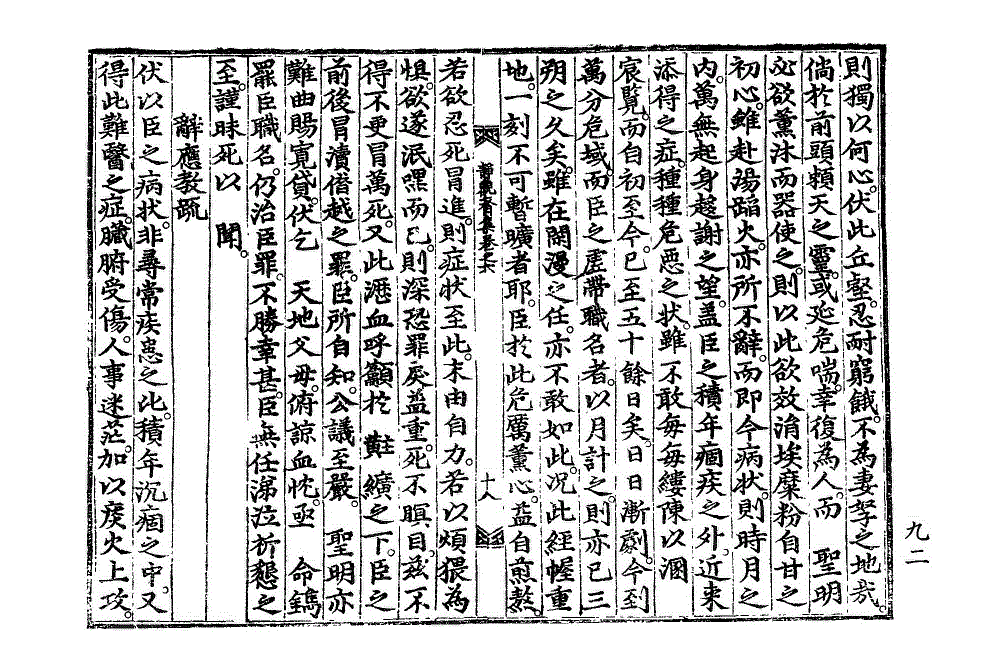 則獨以何心。伏此丘壑。忍耐窮餓。不為妻孥之地哉。
倘於前頭。賴天之靈。或延危喘。幸復為人。而 聖明
必欲薰沐而器使之。則以此欲效涓埃。糜粉自甘之
初心。雖赴湯蹈火。亦所不辭。而即今病狀。則時月之
內。萬無起身趍謝之望。盖臣之積年痼疾之外。近来
添得之症。種種危惡之狀。雖不敢每每縷陳。以溷
宸覽。而自初至今。已至五十餘日矣。日日漸劇。今到
萬分危域。而臣之虛帶職名者。以月計之。則亦已三
朔之久矣。雖在閑漫之任。亦不敢如此。况此經幄重
地。一刻不可暫曠者耶。臣於此危厲薰心。益自煎熬。
卷之六
十八
若欲忍死冒進。則症状至此。末由自力。若以煩猥為
惧。欲遂泯嘿而已。則深恐罪戾益重。死不瞑目。玆不
得不更冒萬死。又此瀝血呼籲於 黈纊之下。臣之
前後冒瀆僭越之罪。臣所自知。公議至嚴。 聖明亦
難曲賜寬貸。伏乞 天地父母。俯諒血忱。亟 命鐫
罷臣職名。仍治臣罪。不勝幸甚。臣無任涕泣祈懇之
至。謹昧死以 聞。
辭應教疏
伏以臣之病状。非尋常疾患之比。積年沉痼之中。又
得此難醫之症。臟腑受傷。人事迷茫。加以痰火上攻。
九二